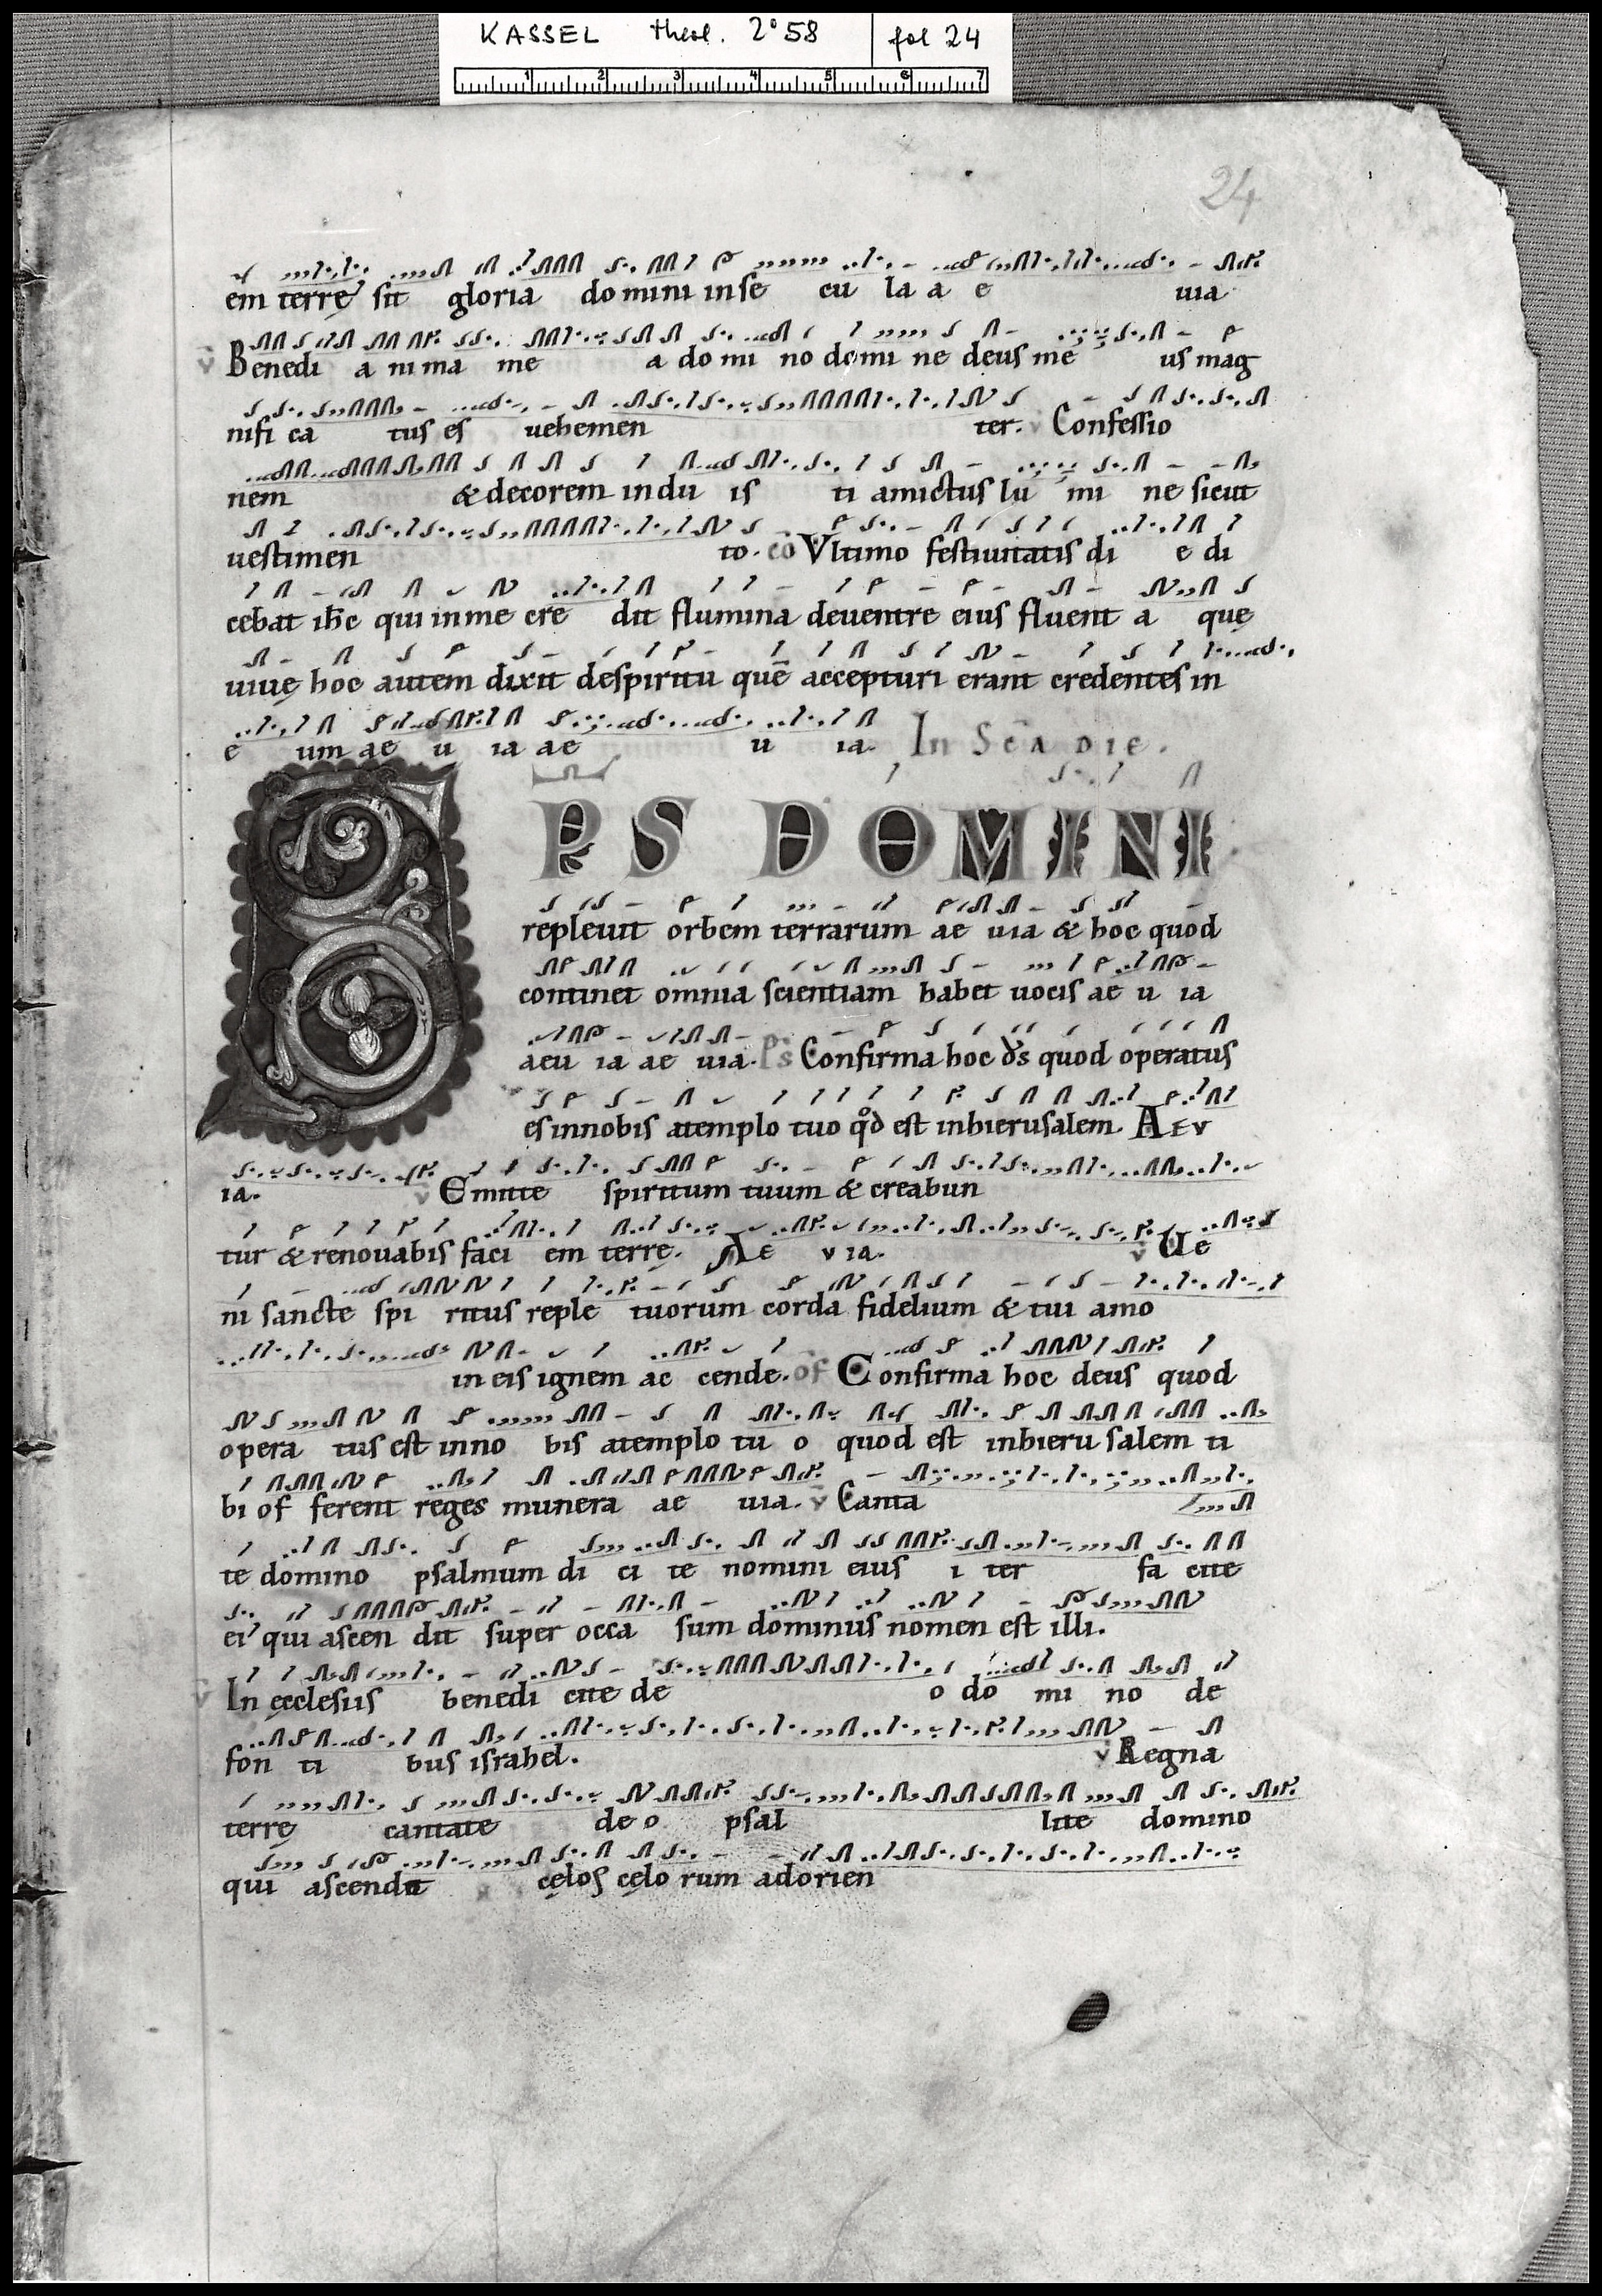 KASSEL theol. 2° 58 fol 24
1 2 3 4 5 6 7
24
em terrę sit gloria do mini in se cu la a e uia
v̄ Benedi a ni ma me a do mi no domi ne deus me us mag
nifi ca tus es uehemen ter. v Confessio
nem & decorem indu is ti amictus lu mi ne sicut
uestimen to. cō Vltimo festiuitatis di e di
cebat ih̄c qui in me cre dit flumina deuentre eius fluent a quę
uiuę hoc autem dixit despiritu quē accepturi erant credentes in
e um ae u ia ae u ia. In Sc̄a die.
S PS DOMINI
repleuit orbem terrarum ae uia & hoc quod
continet omnia scientiam habet uocis ae u ia
aeu ia ae uia. Ps Confirma hoc d̄s quod operatus
es innobis atemplo tuo qd̊ est inhierusalem. AEV
ia. v Emitte spiritum tuum & creabun
tur & renouabis faci em terrę. AE VIA. v̄ Ve
ni sancte spi ritus reple tuorum corda fidelium & tui amo
in eis ignem ac cende. of Confirma hoc deus quod
opera tus est inno bis atemplo tu o quod est inhieru salem ti
bi of ferent reges munera ae uia. v̄ Canta
te domino psalmum di ci te nomini eius i ter fa cite
ei qui ascen dit super occa sum dominus nomen est illi.
v̄ In ęcclesiis benedi cite de o do mi no de
fon ti bus israhel. v Regna
terrę cantate de o psal lite domino
qui ascendit cęlos cęlo rum adorien